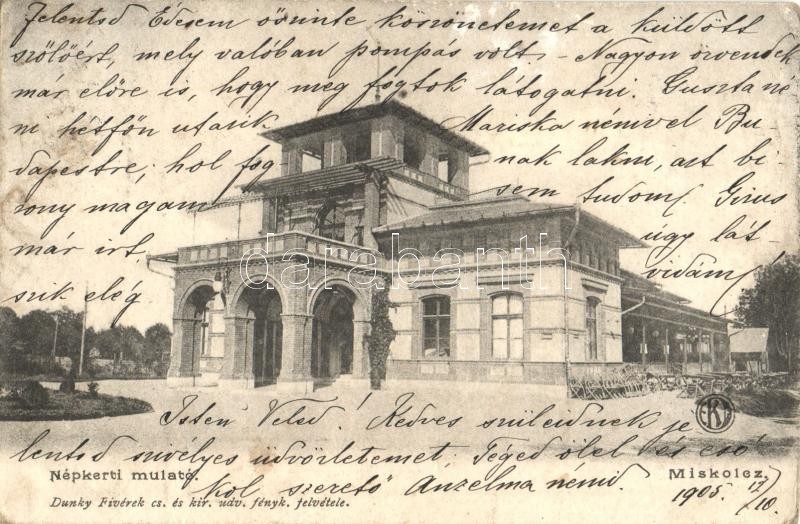 Jelentsd Édesem őszinte köszönetemet a küldött
szőlőért, mely valóban pompás volt - Nagyon örvendek
már előre is, hogy meg fogtok látogatni. Guszta né
ni hétfőn utazik Mariska nénivel Bu
dapestre; hol fog nak lakni, azt bi
zony magam sem tudom. Girus
már irt, úgy lát
szik elég vidám
darabanth
Isten Veled! Kedves szüleidnek je
lentsd szivélyes üdvözletemet. Téged ölel és csó
kol szerető Anzelma nénid. 1905 17/10.
Népkerti mulató. Miskolcz.
Dunky Fivérek cs. és kir. udv. fényk. felvétele.